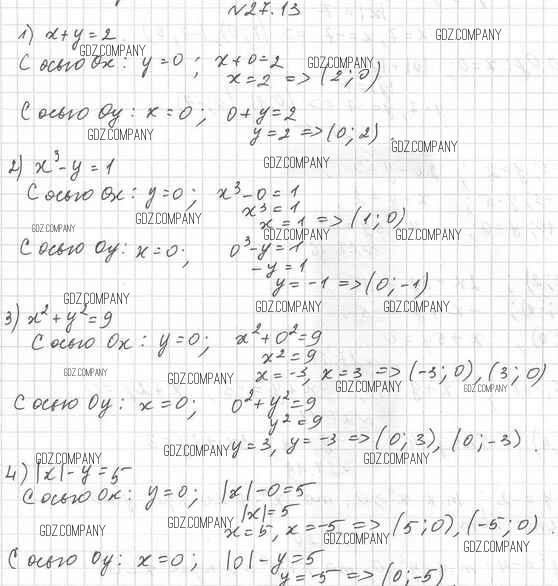 №27.13
1) x+y=2
GDZ.COMPANY
GDZ.COMPANY
С осью Ox: y=0; x+0=2
GDZ.COMPANY
x=2 => (2;0)
С осью Oy: x=0; 0+y=2
GDZ.COMPANY
y=2 => (0;2).
GDZ.COMPANY
2) x³-y=1
GDZ.COMPANY
С осью Ox: y=0; x³-0=1
x³=1
GDZ.COMPANY
x=1 => (1;0)
GDZ.COMPANY
GDZ.COMPANY
GDZ.COMPANY
С осью Oy: x=0; 0³-y=1
-y=1
y=-1 => (0;-1)
GDZ.COMPANY
GDZ.COMPANY
GDZ.COMPANY
3) x²+y²=9
С осью Ox: y=0; x²+0²=9
x²=9
GDZ.COMPANY
GDZ.COMPANY
x=-3, x=3 => (-3;0), (3;0)
GDZ.COMPANY
GDZ.COMPANY
С осью Oy: x=0; 0²+y²=9
y²=9
GDZ.COMPANY
y=3, y=-3 => (0;3), (0;-3).
GDZ.COMPANY
GDZ.COMPANY
4) |x|-y=5
С осью Ox: y=0; |x|-0=5
|x|=5
GDZ.COMPANY
GDZ.COMPANY
x=5, x=-5 => (5;0), (-5;0).
GDZ.COMPANY
GDZ.COMPANY
С осью Oy: x=0; |0|-y=5
y=-5 => (0;-5).